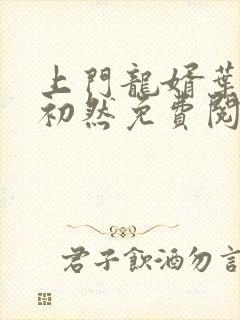 上門龍婿葉
初然免費閱
君子飲酒勿言